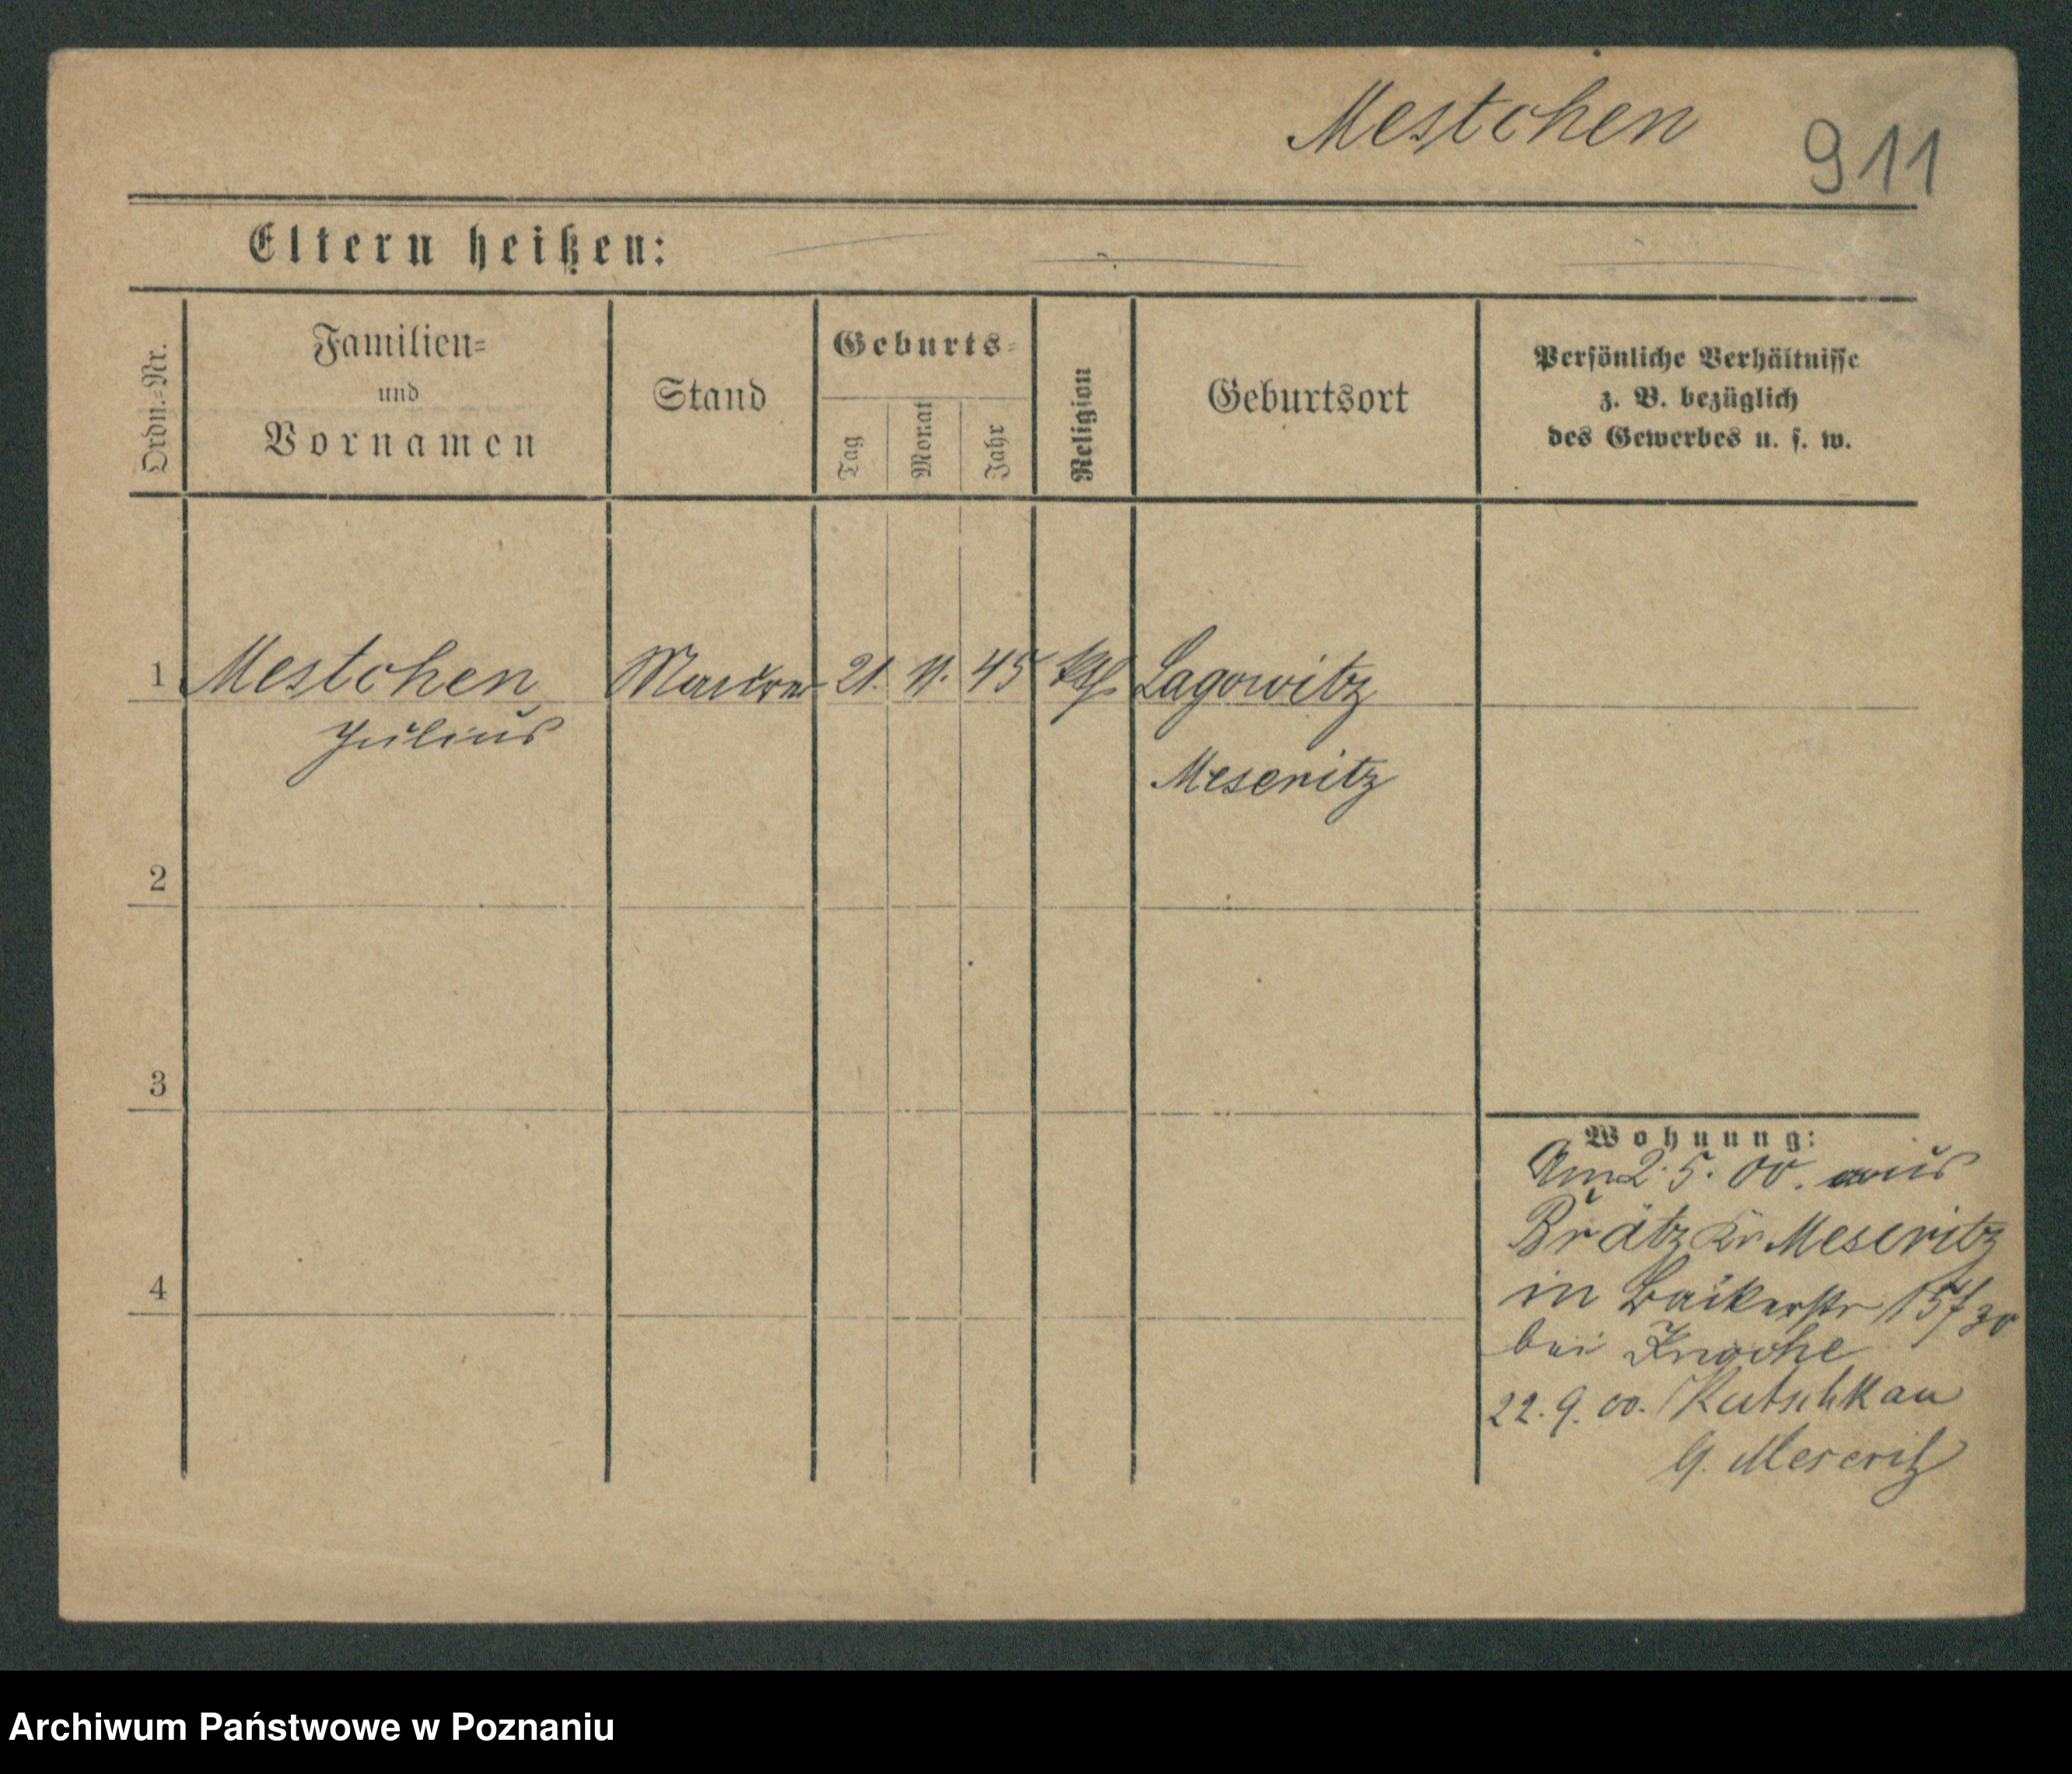 Mestchen
911
Eltern heißen:
Ordn.-Nr.
Familien-
und
Vornamen
Stand
Geburts-
Tag
Monat
Jahr
Religion
Geburtsort
Persönliche Verhältnisse
z. B. bezüglich
des Gewerbes u. s. w.
1 Mestchen Maurer 21. 11. 45 kth. Lagowitz
Julius
Meseritz
2
3
4
Wohnung:
Am 2. 5. 00. aus
Brätz Kr Meseritz
in Bäckerstr 15/
bei Knoche
22. 9. 00. Kutschkau
Meseritz
Archiwum Państwowe w Poznaniu